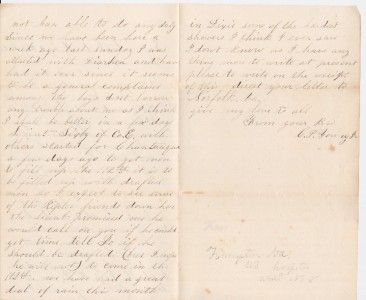 not ben able to do any duty
since we have been here a
week ago last Sunday I was
attacted with Diarhea and have
had it ever since it seems
to be a general complaint
among the boys dont borrow
any trouble about me as I think
I shall be better in a few days
Lieut Sixby of Co E with
others started for Chautauqua
a few days ago to get men
to fill up the 112th it is to
be filled up with drafted
men so I expect to see some
of the Ripley friends down here
the Lieut promised me he
would call on you if he could
get time tell if he
should be drafted (but I hope
he will not) to come in the
112th we have had a great
deal of rain this month
in Dixie some of the hardest
showers I think I ever saw
I dont know as I have any
thing more to write at present
please to write on the receipt
of this direct your letter to
Norfolk Va
give my love to all
From your Bro
Hampton Va
Hospital